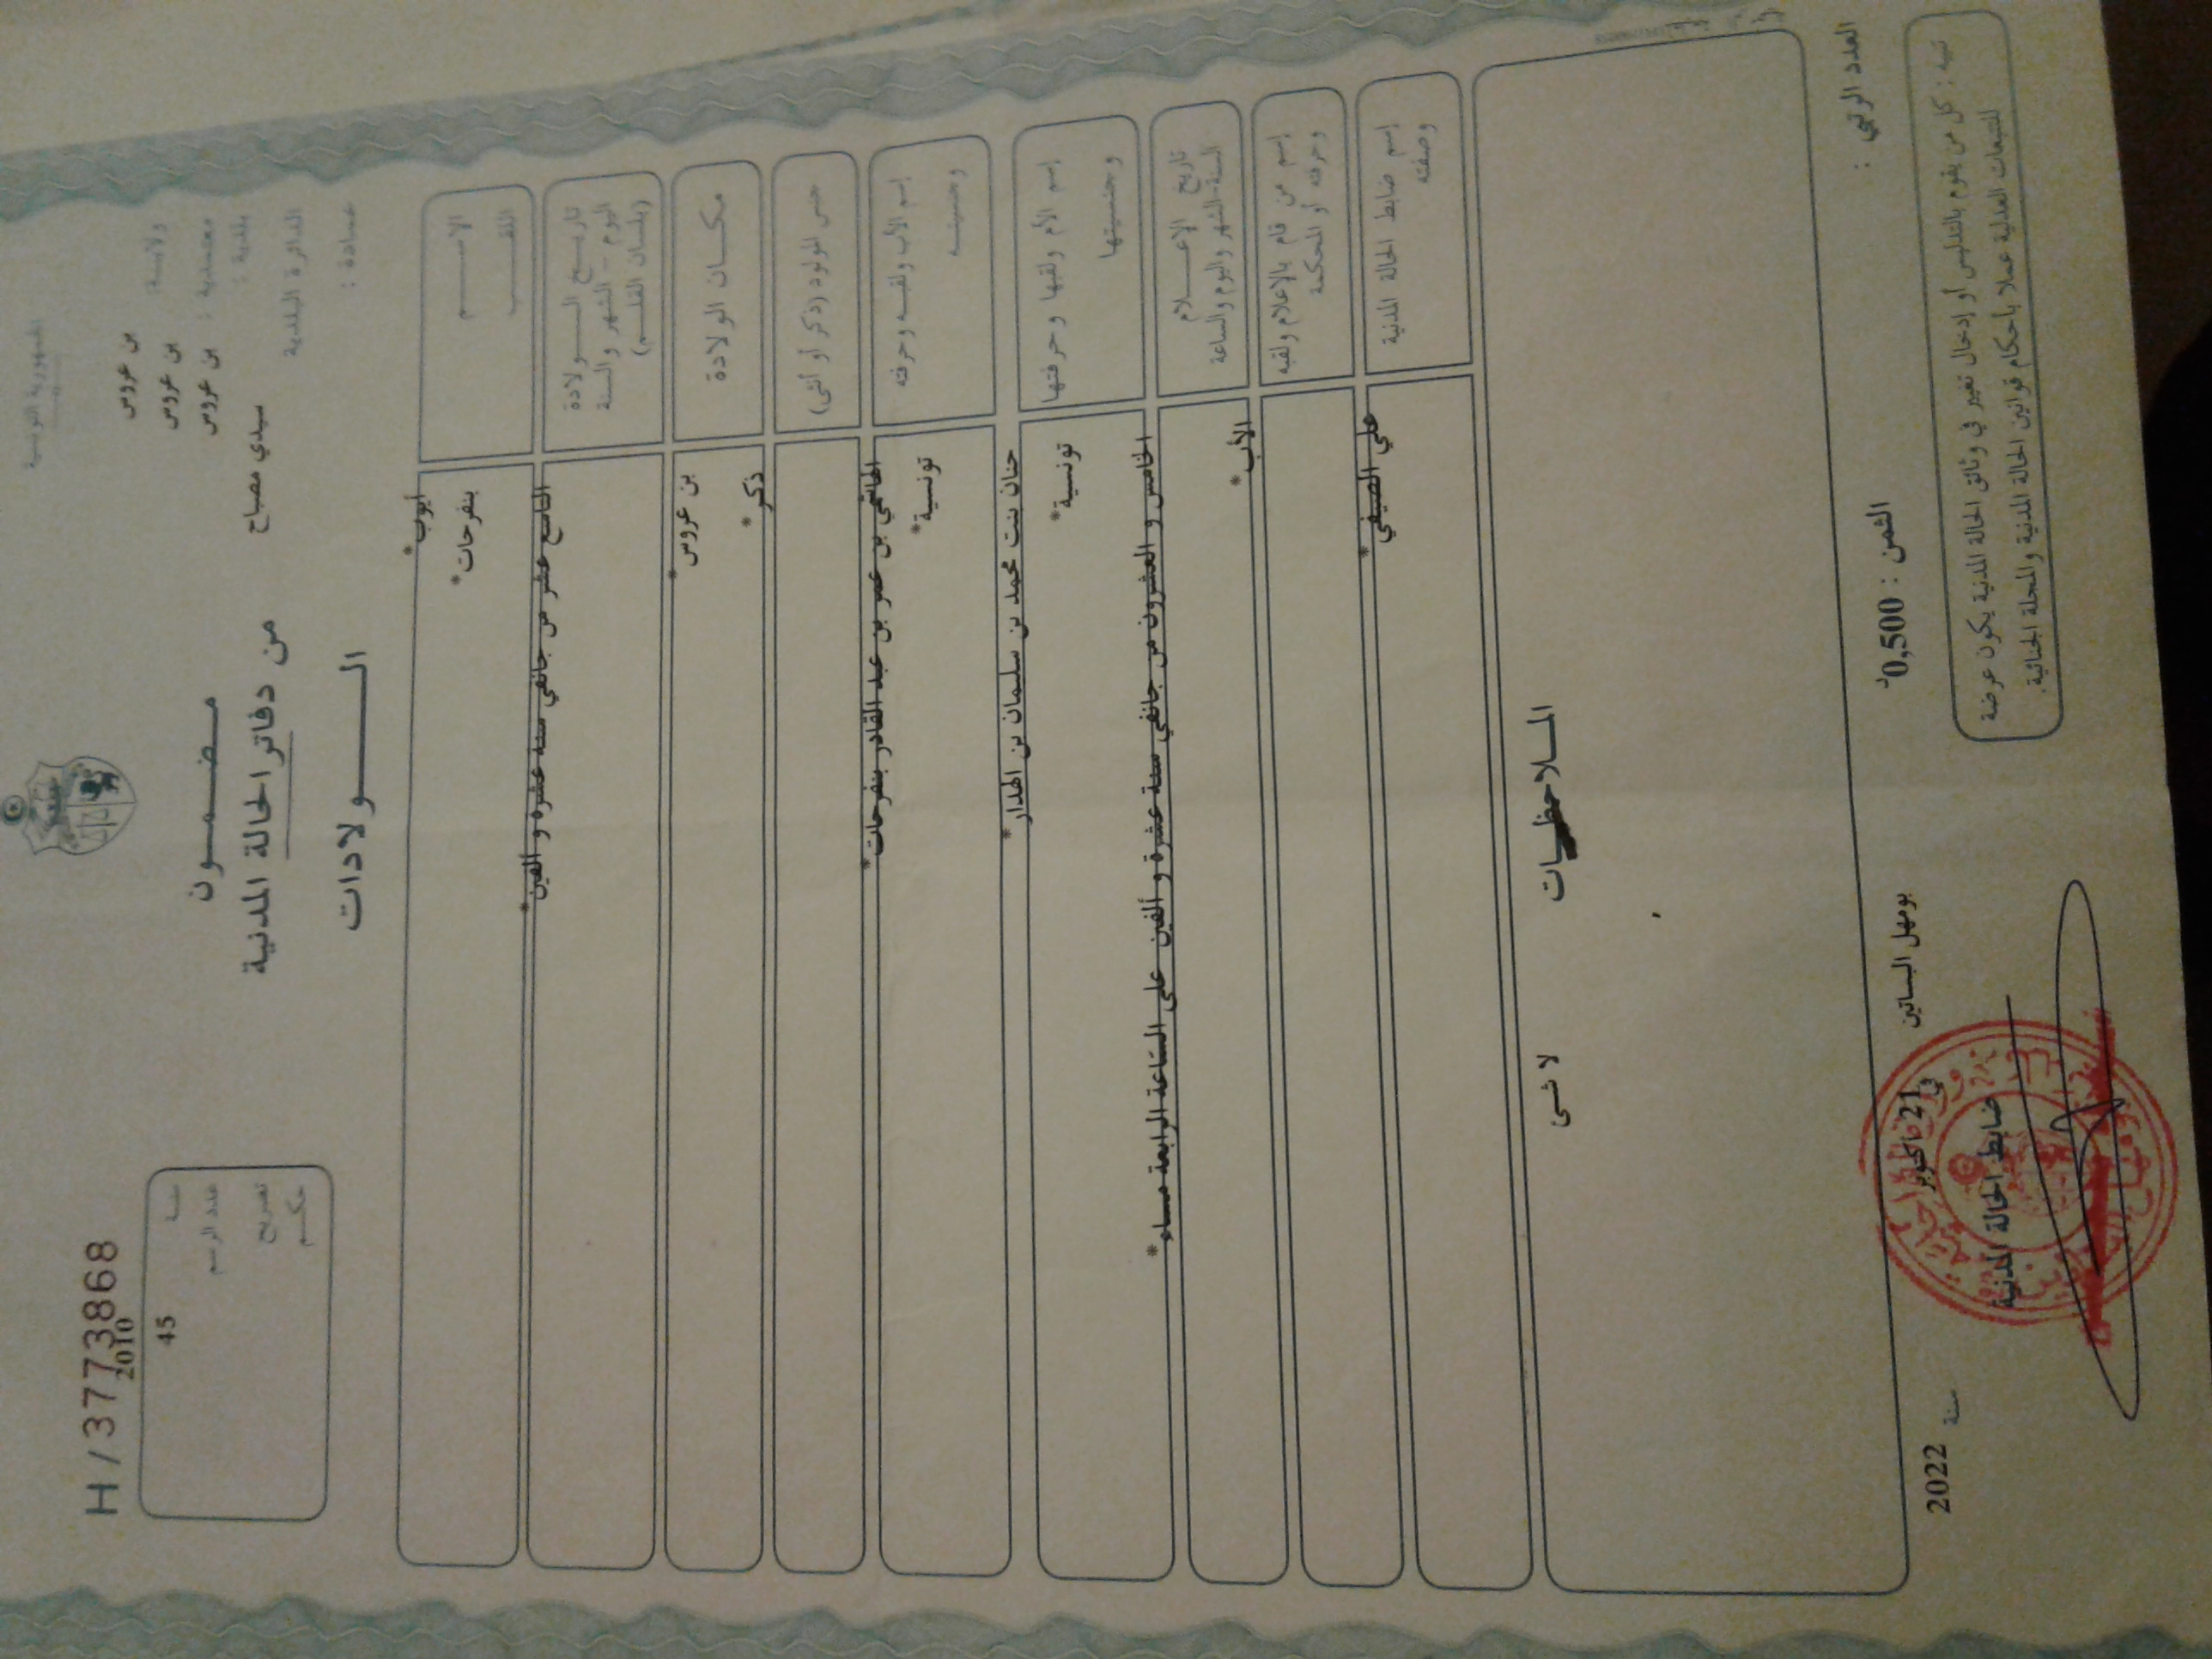 الجمهورية التونسية
ولاية: بن عروس
معتمدية: بن عروس
بلدية: بن عروس
الدائرة البلدية سيدي مصباح
عمادة:
مضمون
من دفاتر الحالة المدنية
الولادات
H/3773868
سنة 2010
عدد الرسم 45
تصريح
حكم
الاسم أيوب*
اللقب بنفرحات*
تاريخ الولادة
اليوم - الشهر والسنة
(بلسان القلم)
التاسع عشر من جانفي سنة عشرة و ألفين*
مكان الولادة بن عروس*
جنس المولود (ذكر أو أنثى) ذكر*
إسم الأب ولقبه وحرفته الهاشمي بن عمر بن عبد القادر بنفرحات*
وجنسيته تونسية*
إسم الأم ولقبها وحرفتها حنان بنت محمد بن سليمان بن الهدار*
وجنسيتها تونسية*
تاريخ الإعلام
السنة-الشهر واليوم والساعة
الخامس و العشرون من جانفي سنة عشرة و ألفين على الساعة الرابعة مساء*
إسم من قام بالإعلام ولقبه الأب*
وحرفته أو المحكمة
إسم ضابط الحالة المدنية علي الصيفي*
وصفته
الملاحظات
لا شئ
العدد الرتبي :
الثمن : 0,500د
بومهل البساتين في 21 أكتوبر سنة 2022
ضابط الحالة المدنية
تنبيه : كل من يقوم بالتدليس أو إدخال تغيير في وثائق الحالة المدنية يكون عرضة
للتتبعات العدلية عملا بأحكام قوانين الحالة المدنية والمجلة الجنائية.